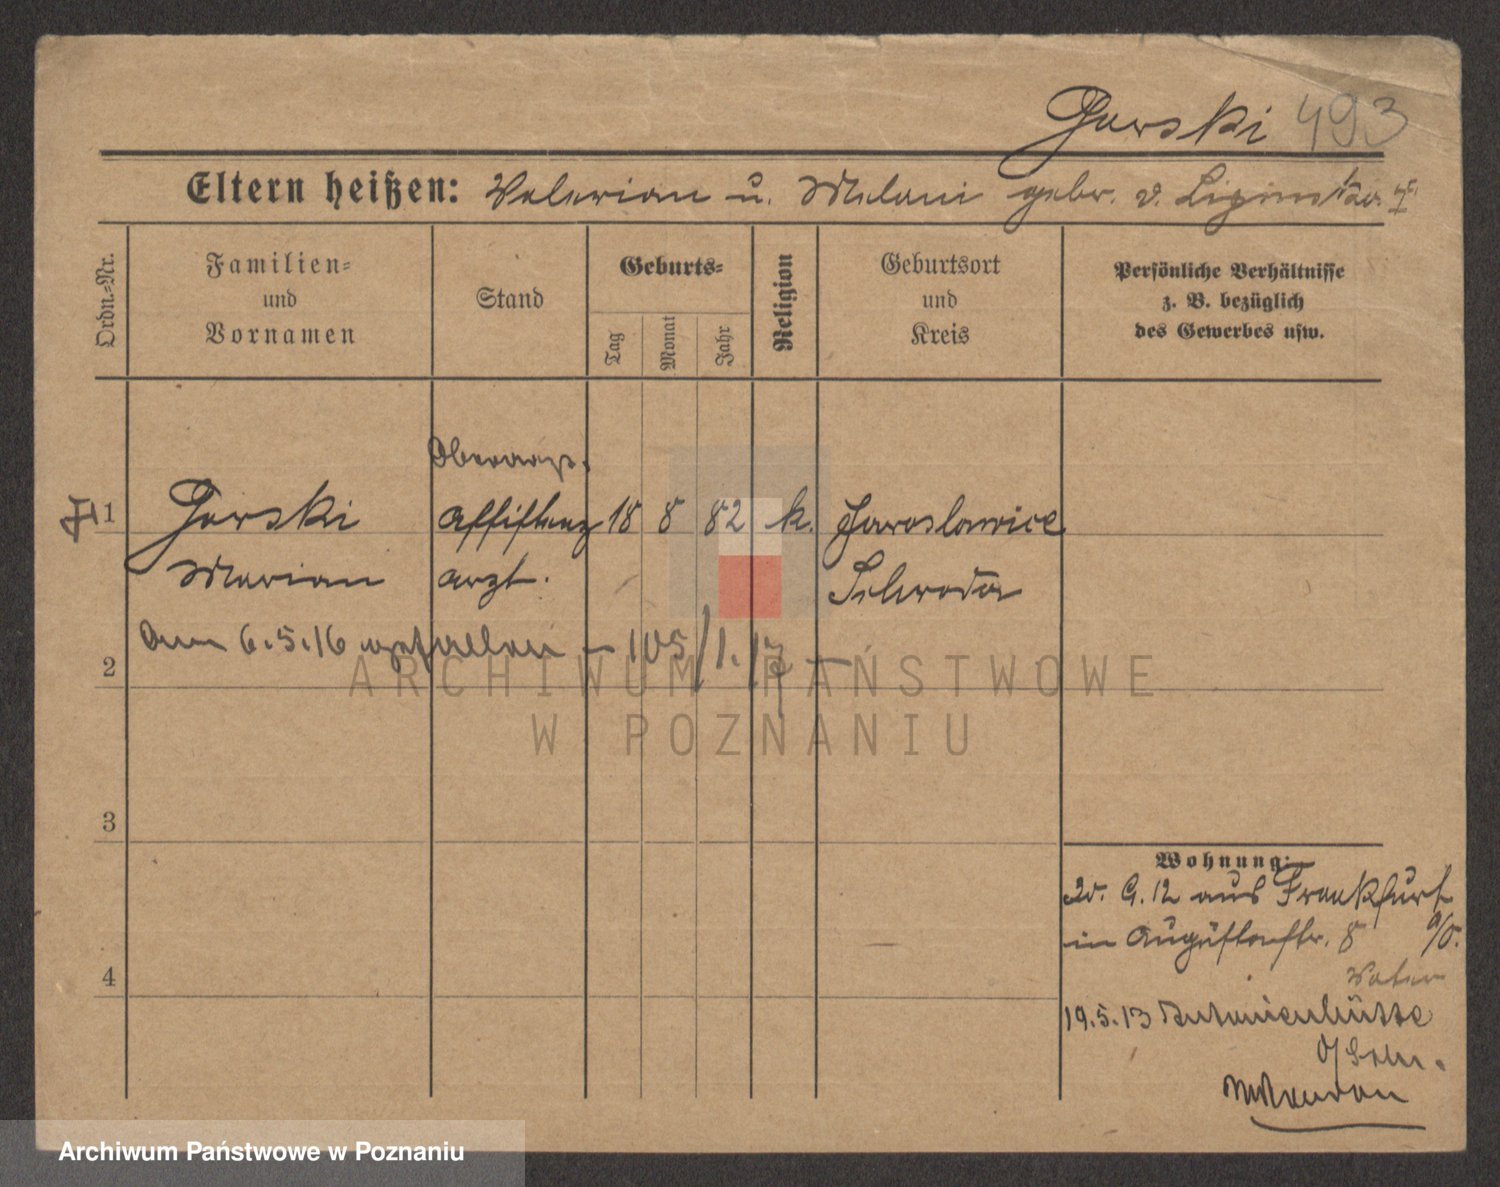 Gorski 493
Eltern heißen: Valerian u. Melani gebr. v. Lipinska
Ordn.-Nr.
Familien-
und
Vornamen
Stand
Geburts-
Tag
Monat
Jahr
Religion
Geburtsort
und
Kreis
Persönliche Verhältnisse
z. B. bezüglich
des Gewerbes usw.
Oberarzt.
1 Gorski Assistenz 18 8 82 k. Jaroslawice
Marian arzt. Schroda
2 Am 6.5.16 gefallen – 105/1.17 –
3
4
Wohnung:
9.12 aus Frankfurt
in Augustastr. 8 a/O.
Vater
19.5.13 Antonienhütte
O/Schl.
ARCHIWUM PAŃSTWOWE
W POZNANIU
Archiwum Państwowe w Poznaniu